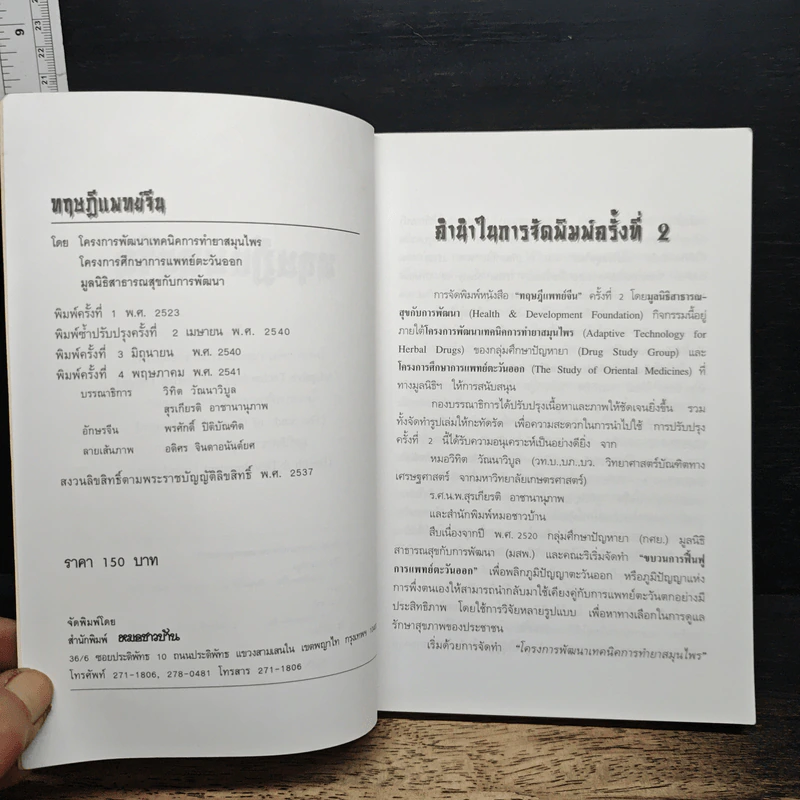 9
23
22
21
ทฤษฎีแพทย์จีน
โดย โครงการพัฒนาเทคนิคการทำยาสมุนไพร
โครงการศึกษาการแพทย์ตะวันออก
มูลนิธิสาธารณสุขกับการพัฒนา
พิมพ์ครั้งที่ 1 พ.ศ. 2523
พิมพ์ซ้ำปรับปรุงครั้งที่ 2 เมษายน พ.ศ. 2540
พิมพ์ครั้งที่ 3 มิถุนายน พ.ศ. 2540
พิมพ์ครั้งที่ 4 พฤษภาคม พ.ศ. 2541
บรรณาธิการ วิทิต วัณนาวิบูล
สุรเกียรติ อาชานานุภาพ
อักษรจีน พรศักดิ์ ปิติบัณฑิต
ลายเส้นภาพ อดิศร จินดาอนันต์ยศ
สงวนลิขสิทธิ์ตามพระราชบัญญัติลิขสิทธิ์ พ.ศ. 2537
ราคา 150 บาท
จัดพิมพ์โดย
สำนักพิมพ์ หมอชาวบ้าน
36/6 ซอยประดิพัทธ 10 ถนนประดิพัทธ แขวงสามเสนใน เขตพญาไท กรุงเทพฯ
โทรศัพท์ 271-1806, 278-0481 โทรสาร 271-1806
คำนำในการจัดพิมพ์ครั้งที่ 2
การจัดพิมพ์หนังสือ "ทฤษฎีแพทย์จีน" ครั้งที่ 2 โดยมูลนิธิสาธารณ-
สุขกับการพัฒนา (Health & Development Foundation) กิจกรรมนี้อยู่
ภายใต้โครงการพัฒนาเทคนิคการทำยาสมุนไพร (Adaptive Technology for
Herbal Drugs) ของกลุ่มศึกษาปัญหายา (Drug Study Group) และ
โครงการศึกษาการแพทย์ตะวันออก (The Study of Oriental Medicines) ที่
ทางมูลนิธิฯ ให้การสนับสนุน
กองบรรณาธิการได้ปรับปรุงเนื้อหาและภาพให้ชัดเจนยิ่งขึ้น รวม
ทั้งจัดทำรูปเล่มให้กะทัดรัด เพื่อความสะดวกในการนำไปใช้ การปรับปรุง
ครั้งที่ 2 นี้ได้รับความอนุเคราะห์เป็นอย่างดียิ่ง จาก
หมอวิทิต วัณนาวิบูล (วท.บ.,บภ.,บว. วิทยาศาสตร์บัณฑิตทาง
เศรษฐศาสตร์ จากมหาวิทยาลัยเกษตรศาสตร์)
ร.ศ.น.พ.สุรเกียรติ อาชานานุภาพ
และสำนักพิมพ์หมอชาวบ้าน
สืบเนื่องจากปี พ.ศ. 2520 กลุ่มศึกษาปัญหายา (กศย.) มูลนิธิ
สาธารณสุขกับการพัฒนา (มสพ.) และคณะริเริ่มจัดทำ "ขบวนการฟื้นฟู
การแพทย์ตะวันออก" เพื่อพลิกภูมิปัญญาตะวันออก หรือภูมิปัญญาแห่ง
การพึ่งตนเองให้สามารถนำกลับมาใช้เคียงคู่กับการแพทย์ตะวันตกอย่างมี
ประสิทธิภาพ โดยใช้การวิจัยหลายรูปแบบ เพื่อหาทางเลือกในการดูแล
รักษาสุขภาพของประชาชน
เริ่มด้วยการจัดทำ "โครงการพัฒนาเทคนิคการทำยาสมุนไพร"